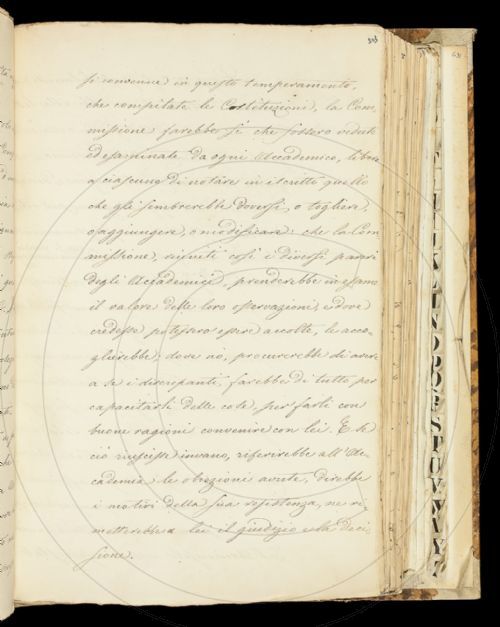 si convenne in questo temperamento,
che compilate le Costituzioni, la Com
missione farebbe sì che fossero vedute
ed esaminate da ogni Accademico, libero
a ciascuno di notare in iscritto quello
che gli sembrerebbe doversi, o togliere,
o aggiungere, o modificare: che la Com
missione, riuniti così i diversi pareri
degli Accademici, prenderebbe in esame
il valore delle loro osservazioni, e dove
credesse potessero essere accolte, le acco-
glierebbe, dove no, procurerebbe di avere
a se i discrepanti, farebbe di tutto per
capacitarli delle cose, per farli con
buone ragioni convenire con lei. E se
ciò riuscisse invano, riferirebbe all'Ac-
cademia le obiezioni avute, direbbe
i motivi della sua resistenza, ne ri-
metterebbe a lei il giudizio e la deci-
sione.